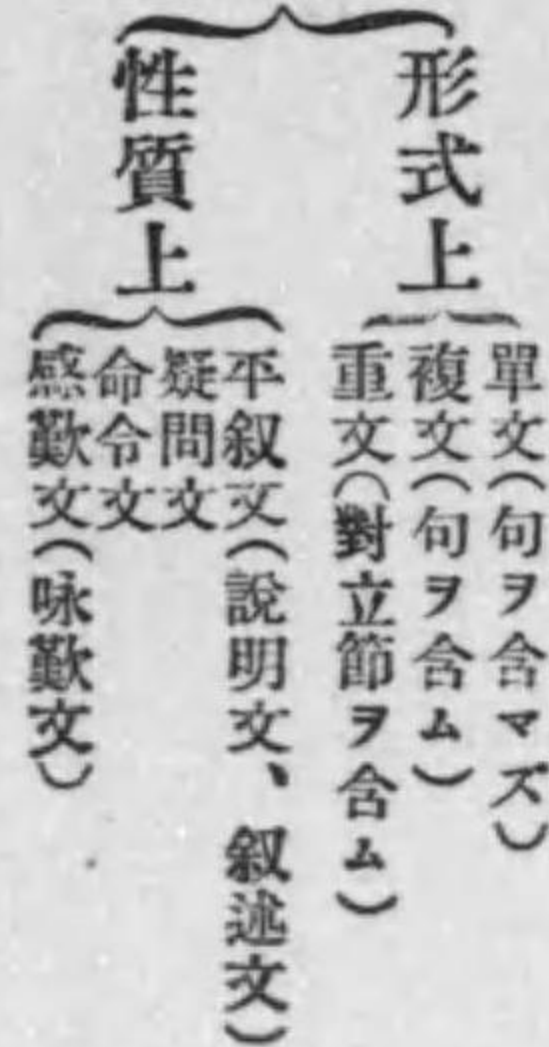 形式上
單文(句ヲ含マズ)
複文(句ヲ含ム)
重文(對立節ヲ含ム)
性質上
平叙文(說明文、叙述文)
疑問文
命令文
感歎文(咏歎文)